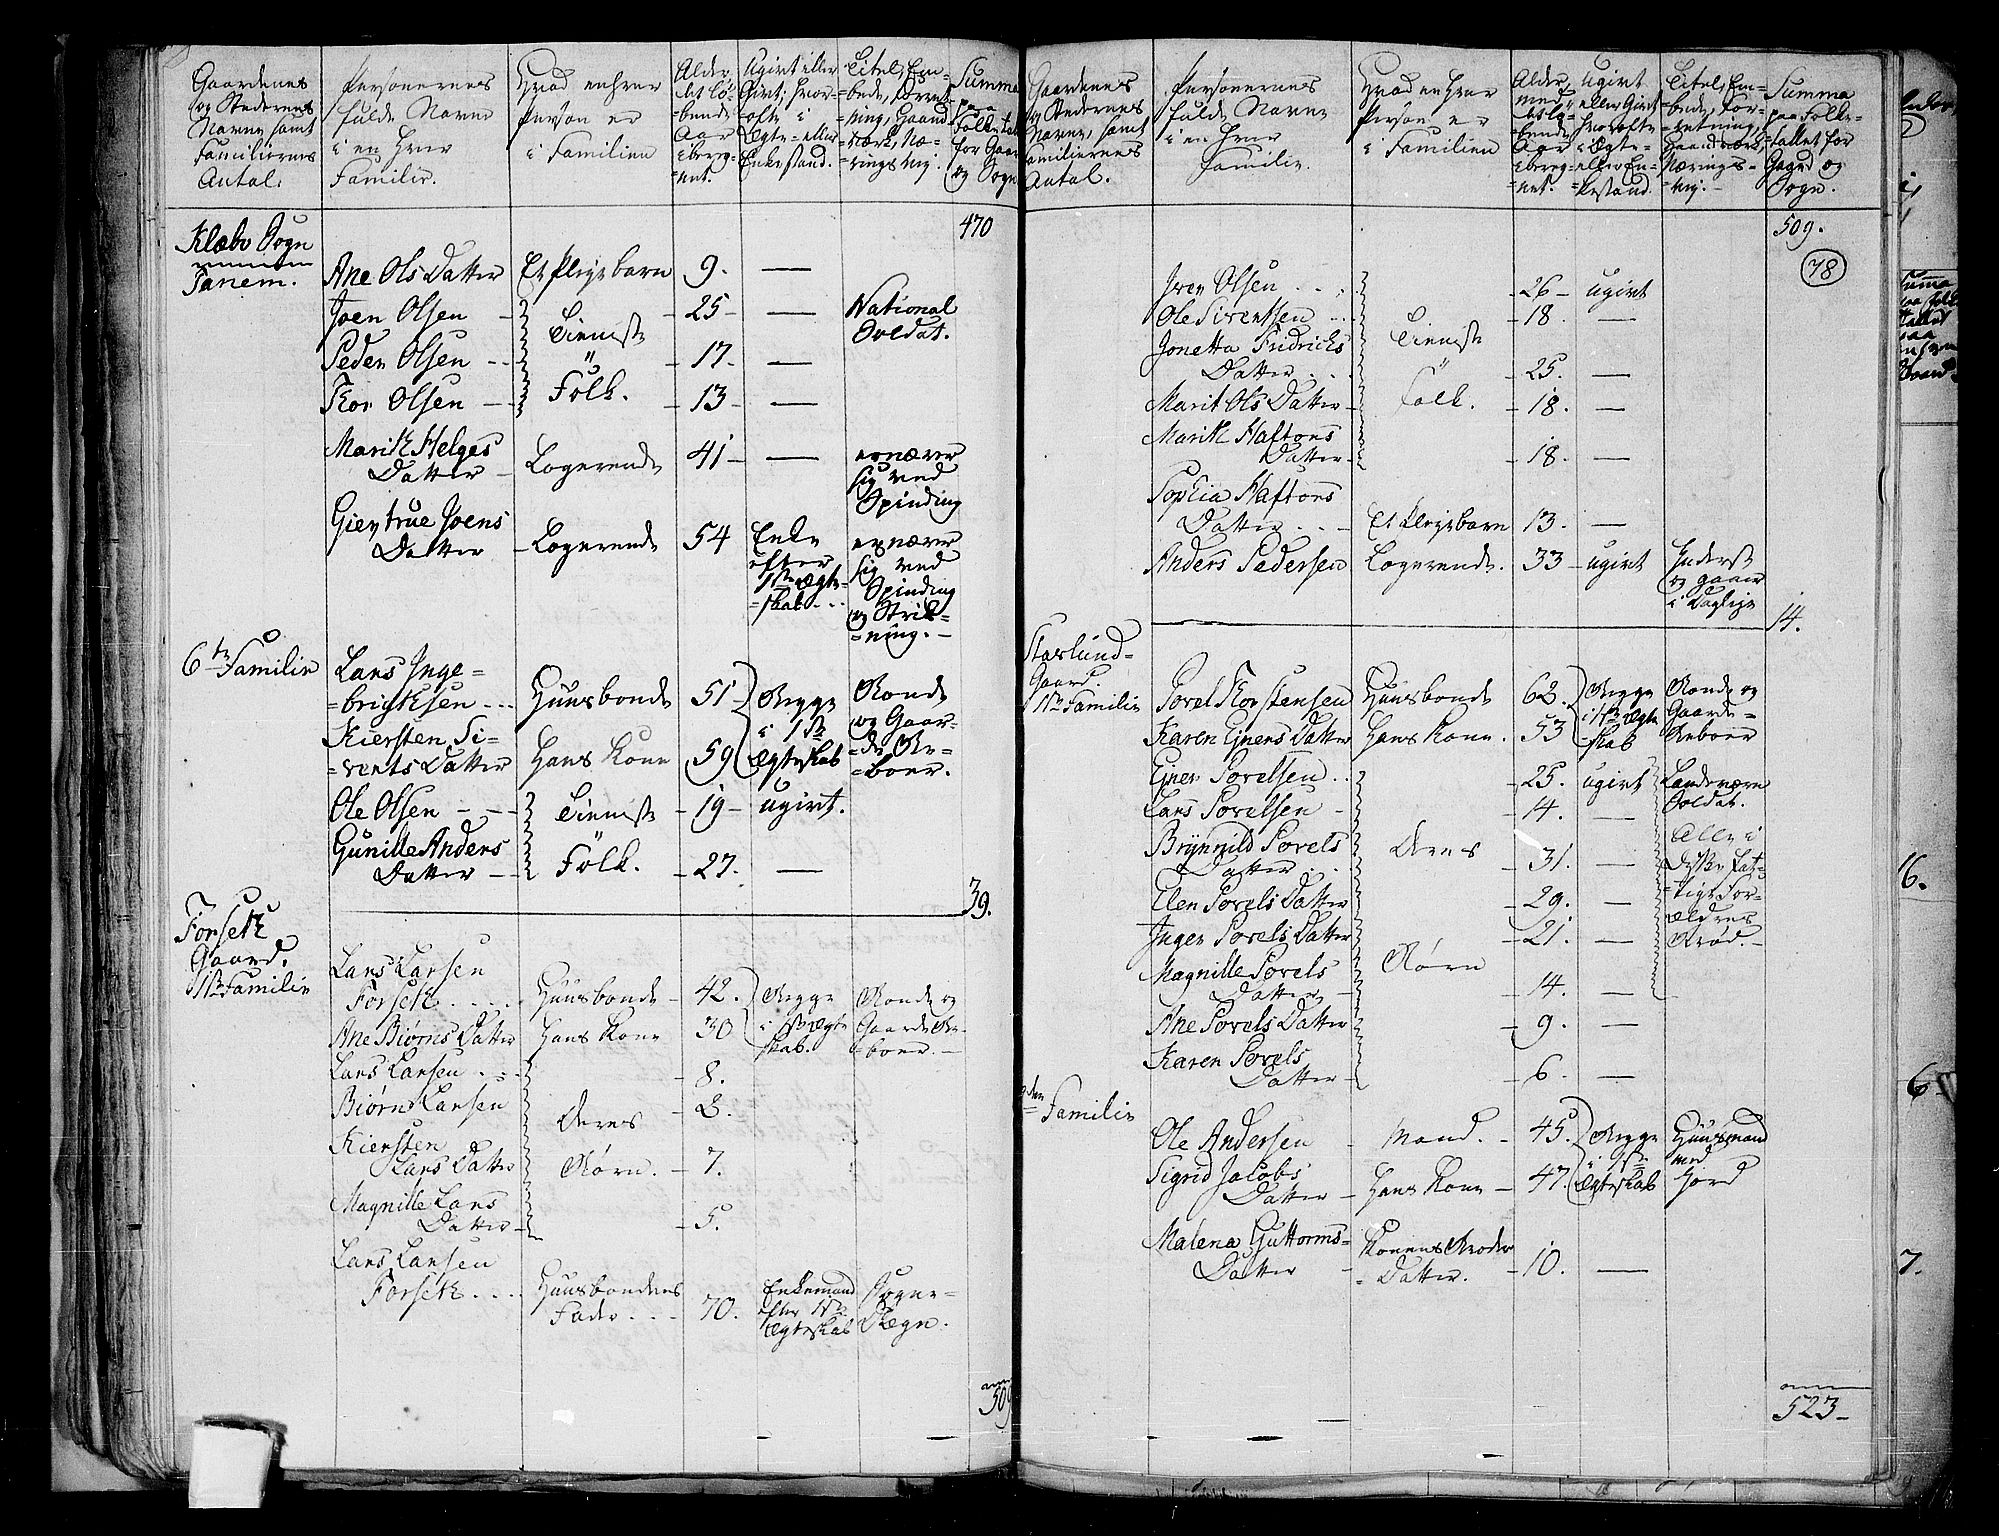 Gaardenes
og Stedernes
Navne, samt
Familiernes
Antal.
Personernes
fulde Navne
i en hver
Familie.
Hvad enhver
Person er
i Familien
Alder,
det lø-
bende
Aar
ibereg-
net.
Ugivt eller
Givt; hvor-
ofte i
Ægte- eller
Enkestand.
Titel, Em-
bede, Forret-
ning, Haand-
værk, Næ-
ringsvej.
Summa
paa
Folketal
for Gaard
og Sogn
470
Klæbo Sogn
Tanem.
Ane Ols Datter Et Pleyebarn 9. —
Joen Olsen - 25 - — National
Soldat.
Tieniste
Peder Olsen - - 17. —
Folk.
Tor Olsen - - 13 - —
Marith Helges
Datter - Logerende 41 - — ernærer
sig ved
Spinding
Giertrue Joens
Datter - Logerende 54 Enke
efter
1ste Ægte-
skab...
ernærer
sig ved
Spinding
og Strik-
ning. -
6te Familie
Lars Inge-
brigtsen ... Huusbonde 51 - Begge
i 1ste
Ægteskab
Bonde
og Gaar-
de Be-
boer.
Kiersten Si-
verts Datter Hans Kone 59
Ole Olsen - - - Tieniste - 19 - ugivt.
Gunille Anders
Datter - Folk. - 27. —
39.
Forseth
Gaard.
1ste Familie
Lars Larsen
Forseth .... Huusbonde - 42. Begge
i 1ste Ægte
skab.
Bonde og
Gaarde Be-
boer. -
Ane Biørns Datter Hans Kone 30
Lars Larsen . - . - 8.
Biørn Larsen - 8.
Deres
Kiersten
Lars Datter Børn. - 7.
Magnille Lars
Datter - - 5.
Lars Larsen
Forseth .... Huusbondens
Fader ... 70. Enkemand
efter 1ste
Ægteskab
Sogne-
Degn.
509
Gaardenes
og Stedernes
Navne, samt
Familiernes
Antal.
Personernes
fulde Navne
i en hver
Familie.
Hvad en hver
Person er
i Familien
Alder
med
det lø-
bende
Aar
ibereg-
net.
Ugivt
eller Givt
hvor ofte
i Ægte-
eller En-
kestand.
Titel, Em-
bede, For-
retning,
Haandværk,
Nærings-
vej. -
Summa
paa Folke-
tallet for
Gaard og
Sogn.
509.
78
Iver Olsen .... - 26 - ugivt
Ole Sivertsen ... - 18. —
Jonetta Fridrichs
Datter ... - 25. —
Tieniste
Folk.
Marit Ols Datter - - 18. —
Marith Haftors
Datter - - 18. —
Sophia Haftors
Datter ... - Et Pleyebarn 13. —
Anders Pedersen Logerende. 33 - ugivt Inderst
og gaaer
i Dagleje
14.
Gaard.
1ste Familie
Sorel Thorstensen Huusbonde 62. Begge
i 1ste Ægte
skab
Bonde og
Gaarde-
Beboer
Karen Ejners Datter Hans Kone. 53
Ejner Sorelsen .. - 25. ugivt Landeværn
Soldat.
Lars Sorelsen - - 14. —
Brynnild Sorels
Datter ... - 31. —
Deres
Alle i
deres fat-
tige For-
ældres
Brød. -
Elen Sorels Datter - 29. —
Inger Sorels Datter - 21. —
Børn
Magnille Sorels
Datter - - 14. —
Ane Sorels Datter - 9. —
Karen Sorels
Datter - - 6. —
2den Familie
Ole Andersen - Mand. - 45. Begge
i 1ste
Ægteskab
Huusmand
med
Jord
Sigrid Jacobs
Datter - Hans Kone - 47.
Malena Guttorms-
Datter - Konens Broder
Datter. - 10. —
523 -
Summa
6.
6
7.